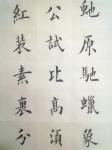 虵原馳蠟象
公試比高須
紅裝素裹分